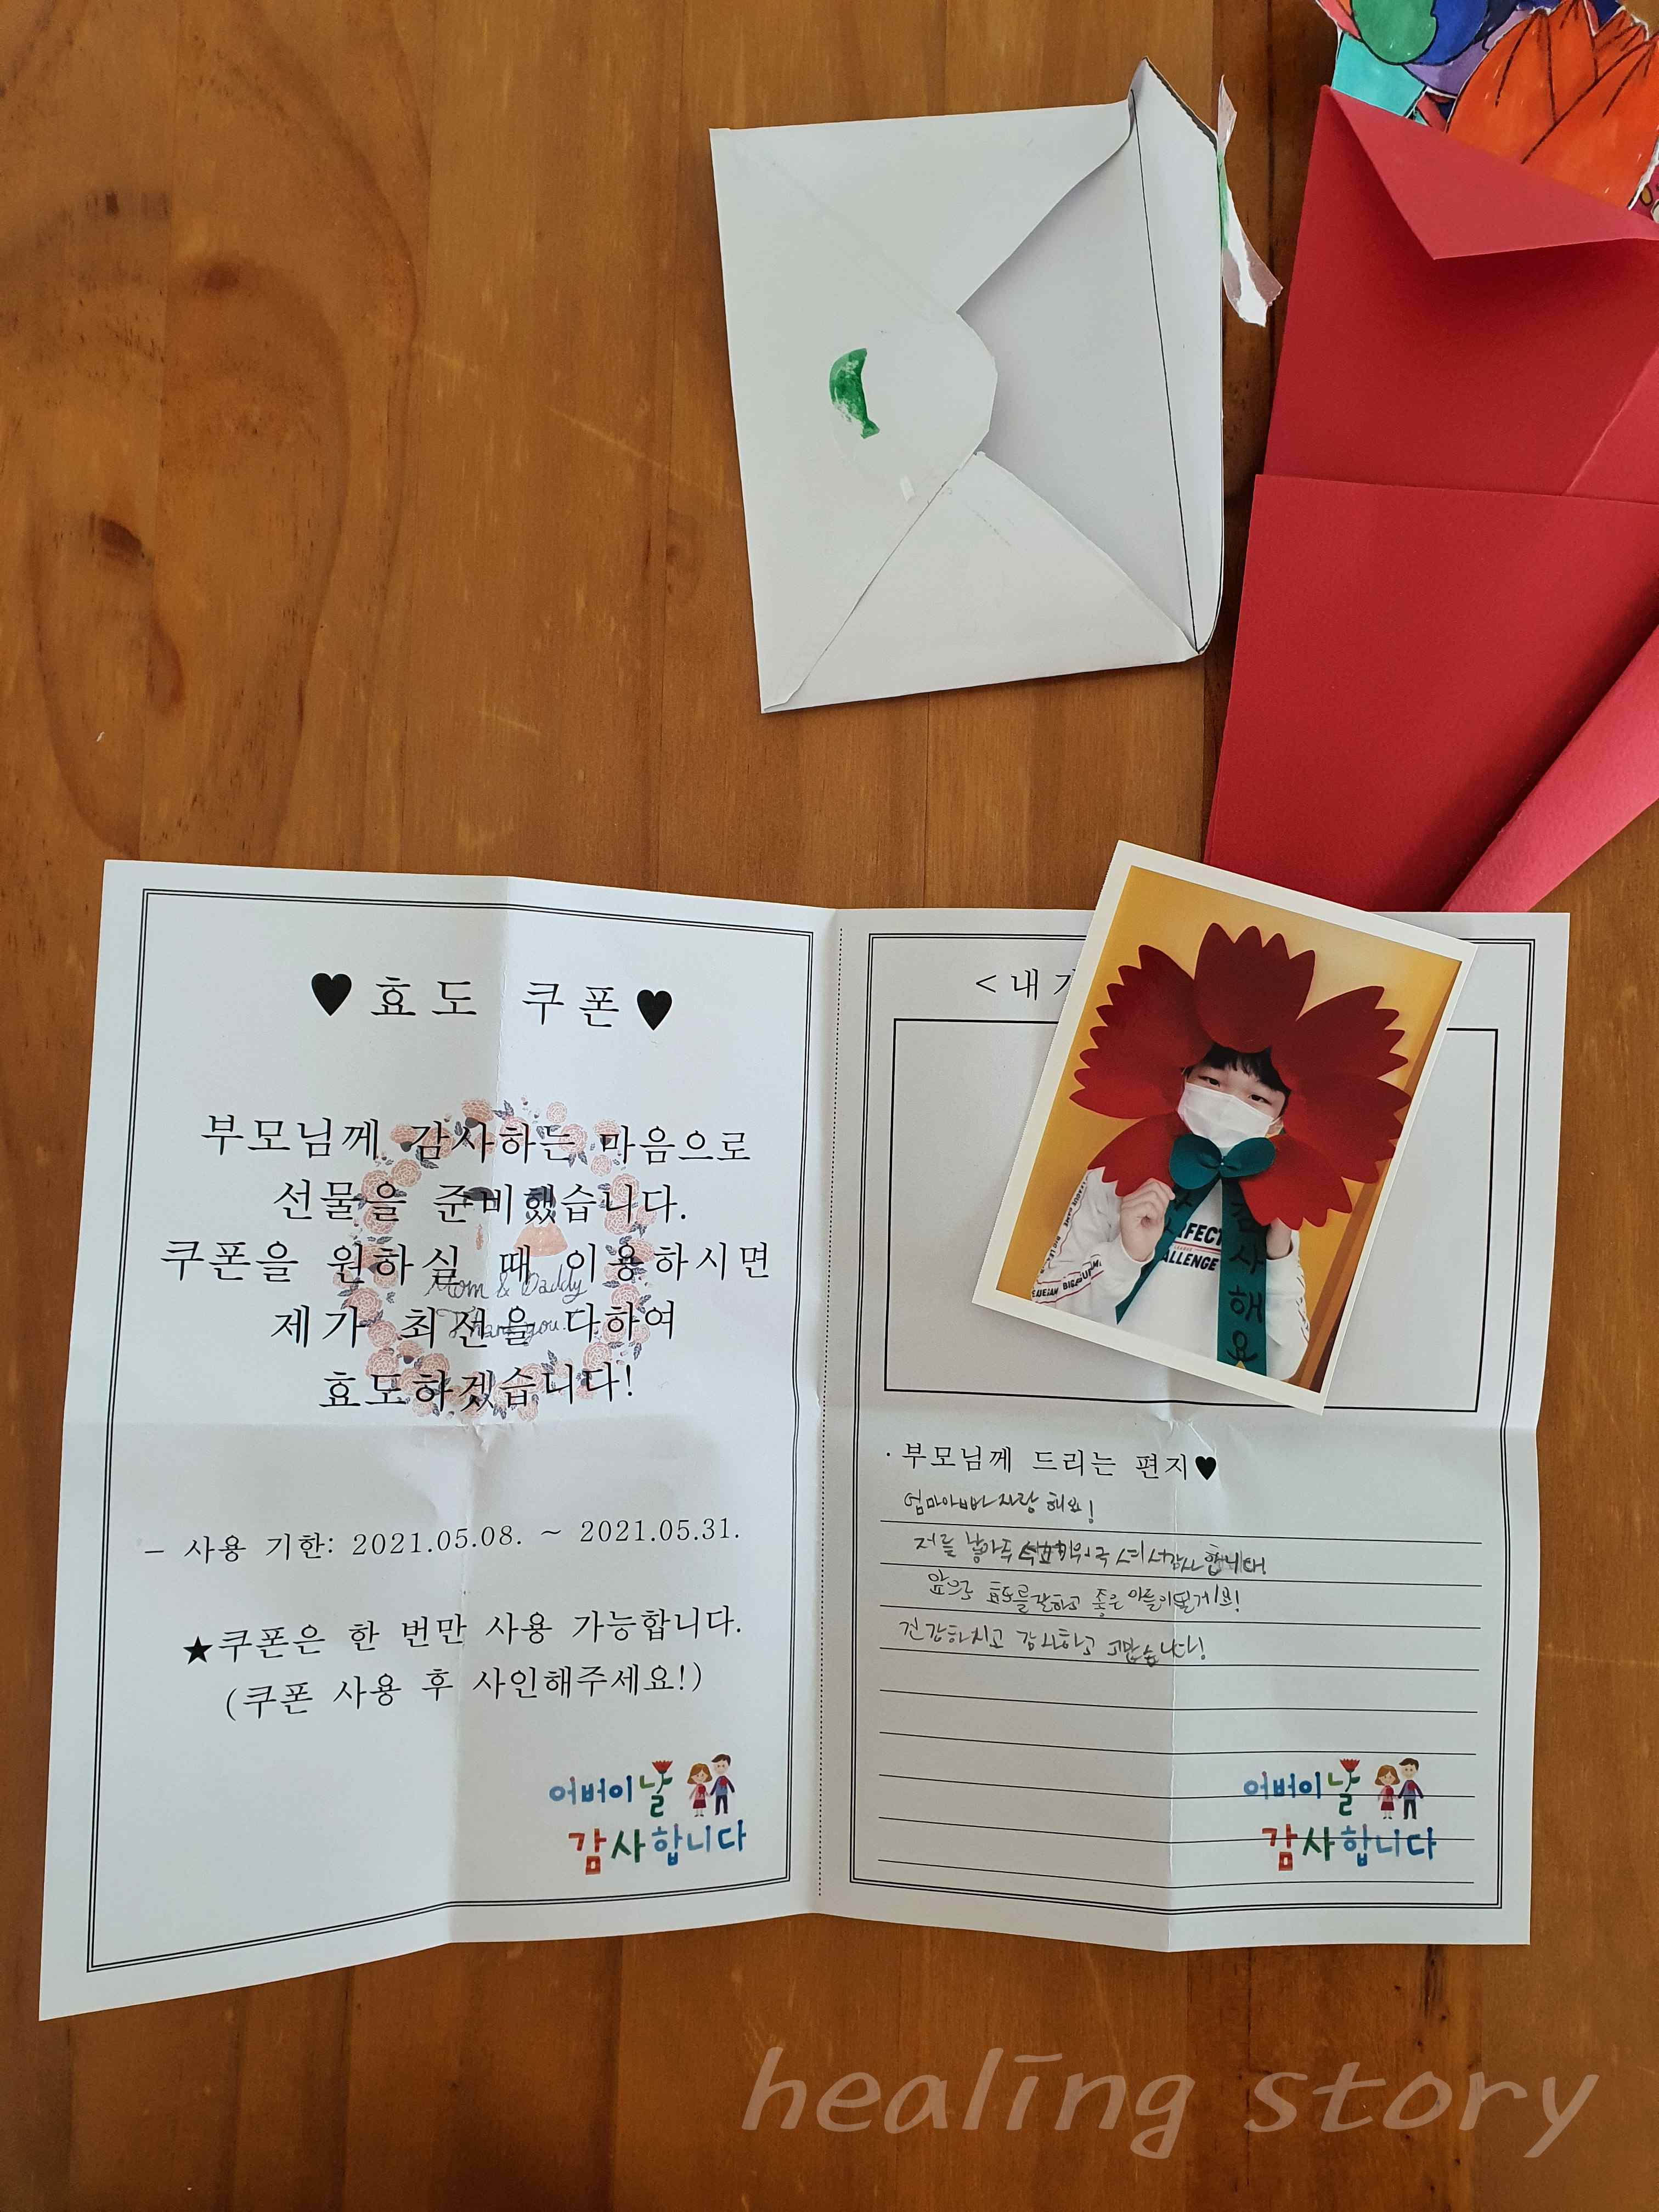 ♥효도 쿠폰♥
부모님께 감사하는 마음으로
선물을 준비했습니다.
쿠폰을 원하실 때 이용하시면
제가 최선을 다하여
효도하겠습니다!
Mom & Daddy
Thank you
- 사용 기한: 2021.05.08. ~ 2021.05.31.
★쿠폰은 한 번만 사용 가능합니다.
(쿠폰 사용 후 사인해주세요!)
어버이날
감사합니다
<내가
RFECT
ALLENGE
감사해요
· 부모님께 드리는 편지♥
엄마아빠사랑 해요!
저를 낳아주 감사합니다
앞으로 효도를잘하고 좋은 아들이될게요!
건강하시고 감사하고 고맙습니다!
어버이날
감사합니다
healing story